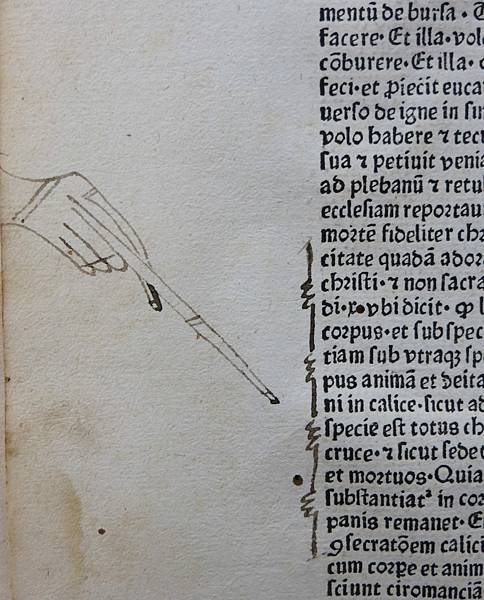 mentū de bursa. 
facere. Et illa. vol
cōburere. Et illa.
feci. et ꝓiecit euca
uerso de igne in sin
volo habere ⁊ tecu
sua ⁊ petiuit venia
ad plebanū ⁊ retul
ecclesiam reportau
mortē fideliter chr
citate quadā ador
christi. ⁊ non sacra
di. x. vbi dicit. ꝙ
corpus. et sub spec
tiam sub vtraqꝫ sp
pus animā et deita
ni in calice. sicut ad
specie est totus ch
cruce. ⁊ sicut sedet
et mortuos. Quia
substantiat² in cor
panis remanet. E
ꝯsecratōem calici
cum corpe et anim
sciunt ciromanciā